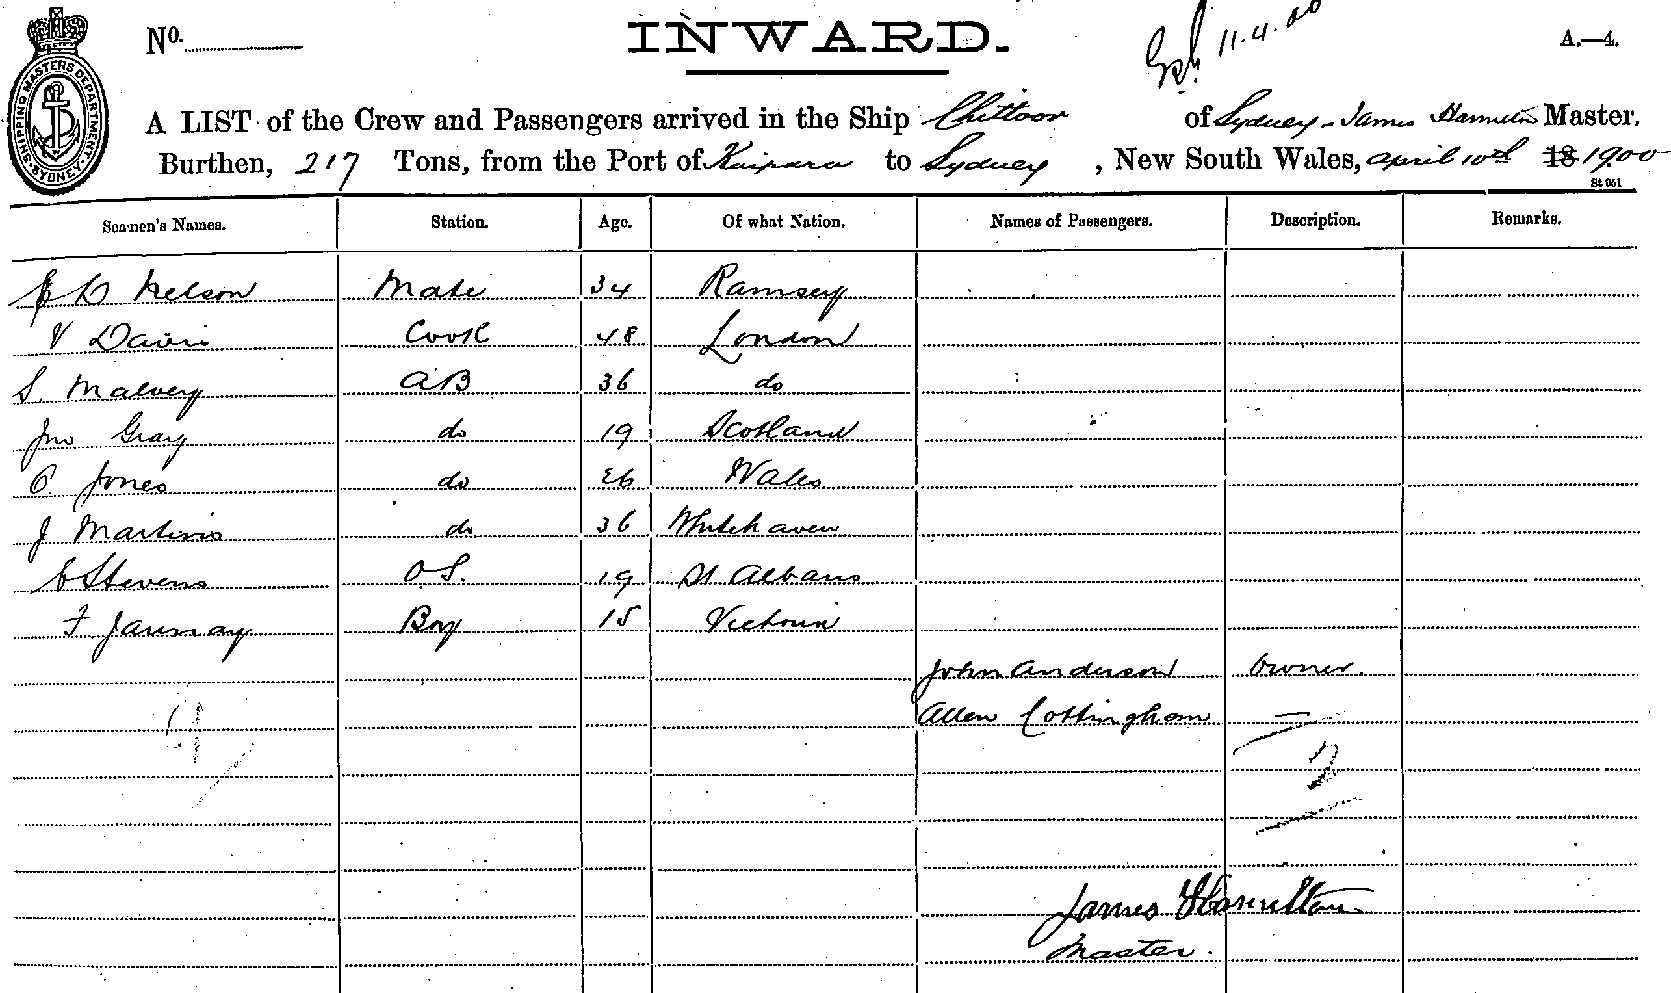 No.
INWARD.
11.4.00
A.—4.
SHIPPING MASTERS DEPARTMENT. SYDNEY.
A LIST of the Crew and Passengers arrived in the Ship Chittoor of Sydney James Hamilton Master.
Burthen, 217 Tons, from the Port of Kaipara to Sydney, New South Wales, April 10th 18 1900
St 051
Seamen's Names. Station. Age. Of what Nation. Names of Passengers. Description. Remarks.
D Nelson Mate 34 Ramsey
V Davis Cook 48 London
S. Malvey AB 36 do
Jno Gray do 19 Scotland
P. Jones do 26 Wales
J Martins do 36 Whitehaven
C Stevens O.S. 19 St Albans
F Jaunay Boy 15 Victoria
John Anderson Owner.
Allen Cottingham
9
2
James Hamilton
Master.